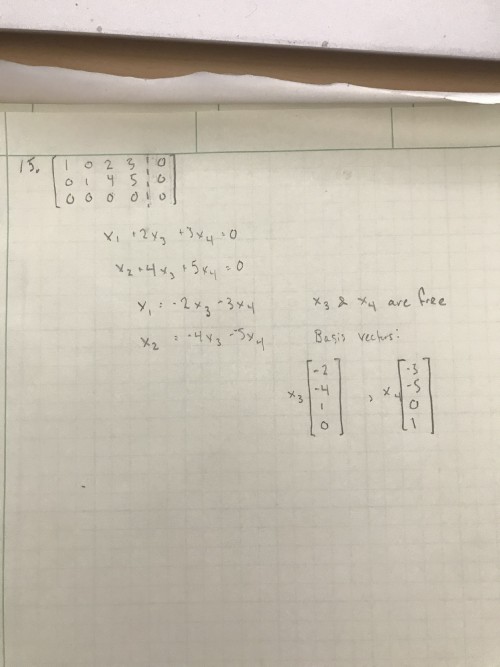 15. [ 1 0 2 3 | 0 ]
[ 0 1 4 5 | 0 ]
[ 0 0 0 0 | 0 ]
x₁ + 2x₃ + 3x₄ = 0
x₂ + 4x₃ + 5x₄ = 0
x₁ = -2x₃ - 3x₄
x₂ = -4x₃ - 5x₄
x₃ & x₄ are free
Basis vectors:
x₃ [ -2 -4 1 0 ] , x₄ [ -3 -5 0 1 ]